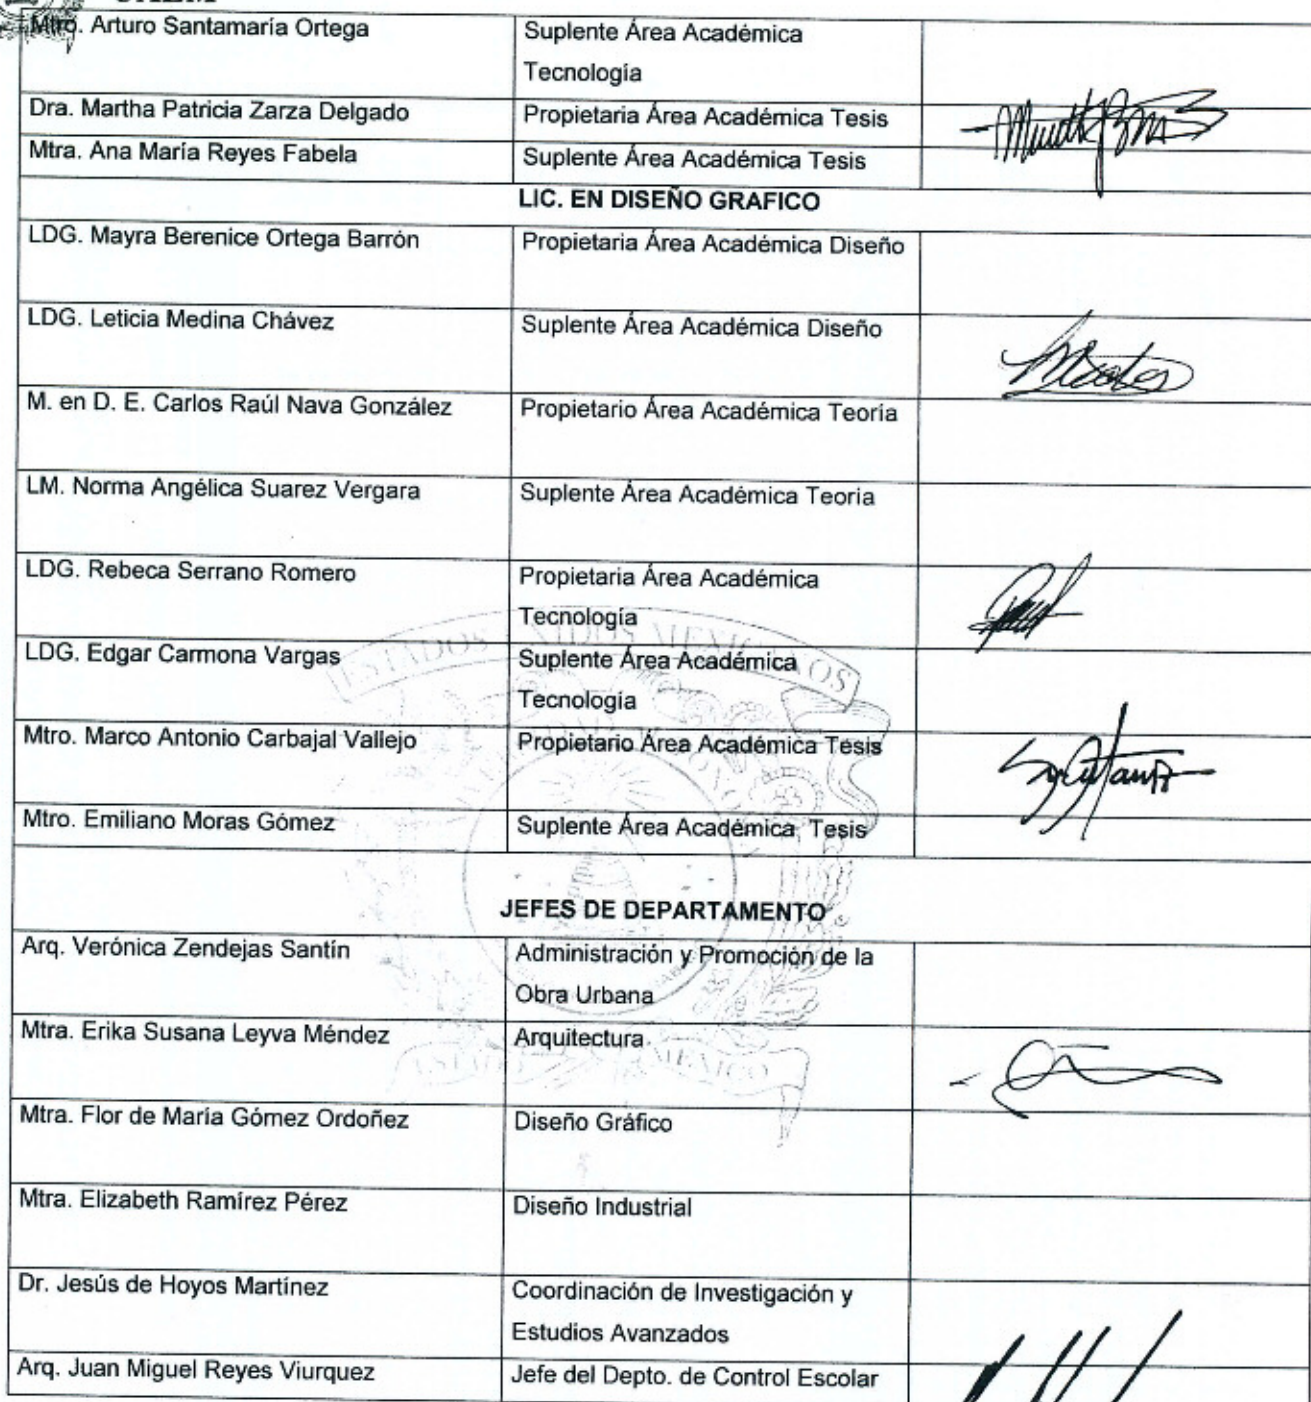 Mtro. Arturo Santamaría Ortega
Suplente Área Académica
Tecnología
Dra. Martha Patricia Zarza Delgado
Propietaria Área Académica Tesis
Mtra. Ana María Reyes Fabela
Suplente Área Académica Tesis
LIC. EN DISEÑO GRAFICO
LDG. Mayra Berenice Ortega Barrón
Propietaria Área Académica Diseño
LDG. Leticia Medina Chávez
Suplente Área Académica Diseño
M. en D. E. Carlos Raúl Nava González
Propietario Área Académica Teoría
LM. Norma Angélica Suarez Vergara
Suplente Área Académica Teoria
LDG. Rebeca Serrano Romero
Propietaria Área Académica
Tecnología
LDG. Edgar Carmona Vargas
Suplente Área Académica
Tecnología
Mtro. Marco Antonio Carbajal Vallejo
Propietario Área Académica Tesis
Mtro. Emiliano Moras Gómez
Suplente Área Académica Tesis
ESTADOS UNIDOS MEXICANOS
JEFES DE DEPARTAMENTO
Arq. Verónica Zendejas Santín
Administración y Promoción de la
Obra Urbana
Mtra. Erika Susana Leyva Méndez
Arquitectura
ESTADO MEXICO
Mtra. Flor de María Gómez Ordoñez
Diseño Gráfico
Mtra. Elizabeth Ramírez Pérez
Diseño Industrial
Dr. Jesús de Hoyos Martínez
Coordinación de Investigación y
Estudios Avanzados
Arq. Juan Miguel Reyes Viurquez
Jefe del Depto. de Control Escolar